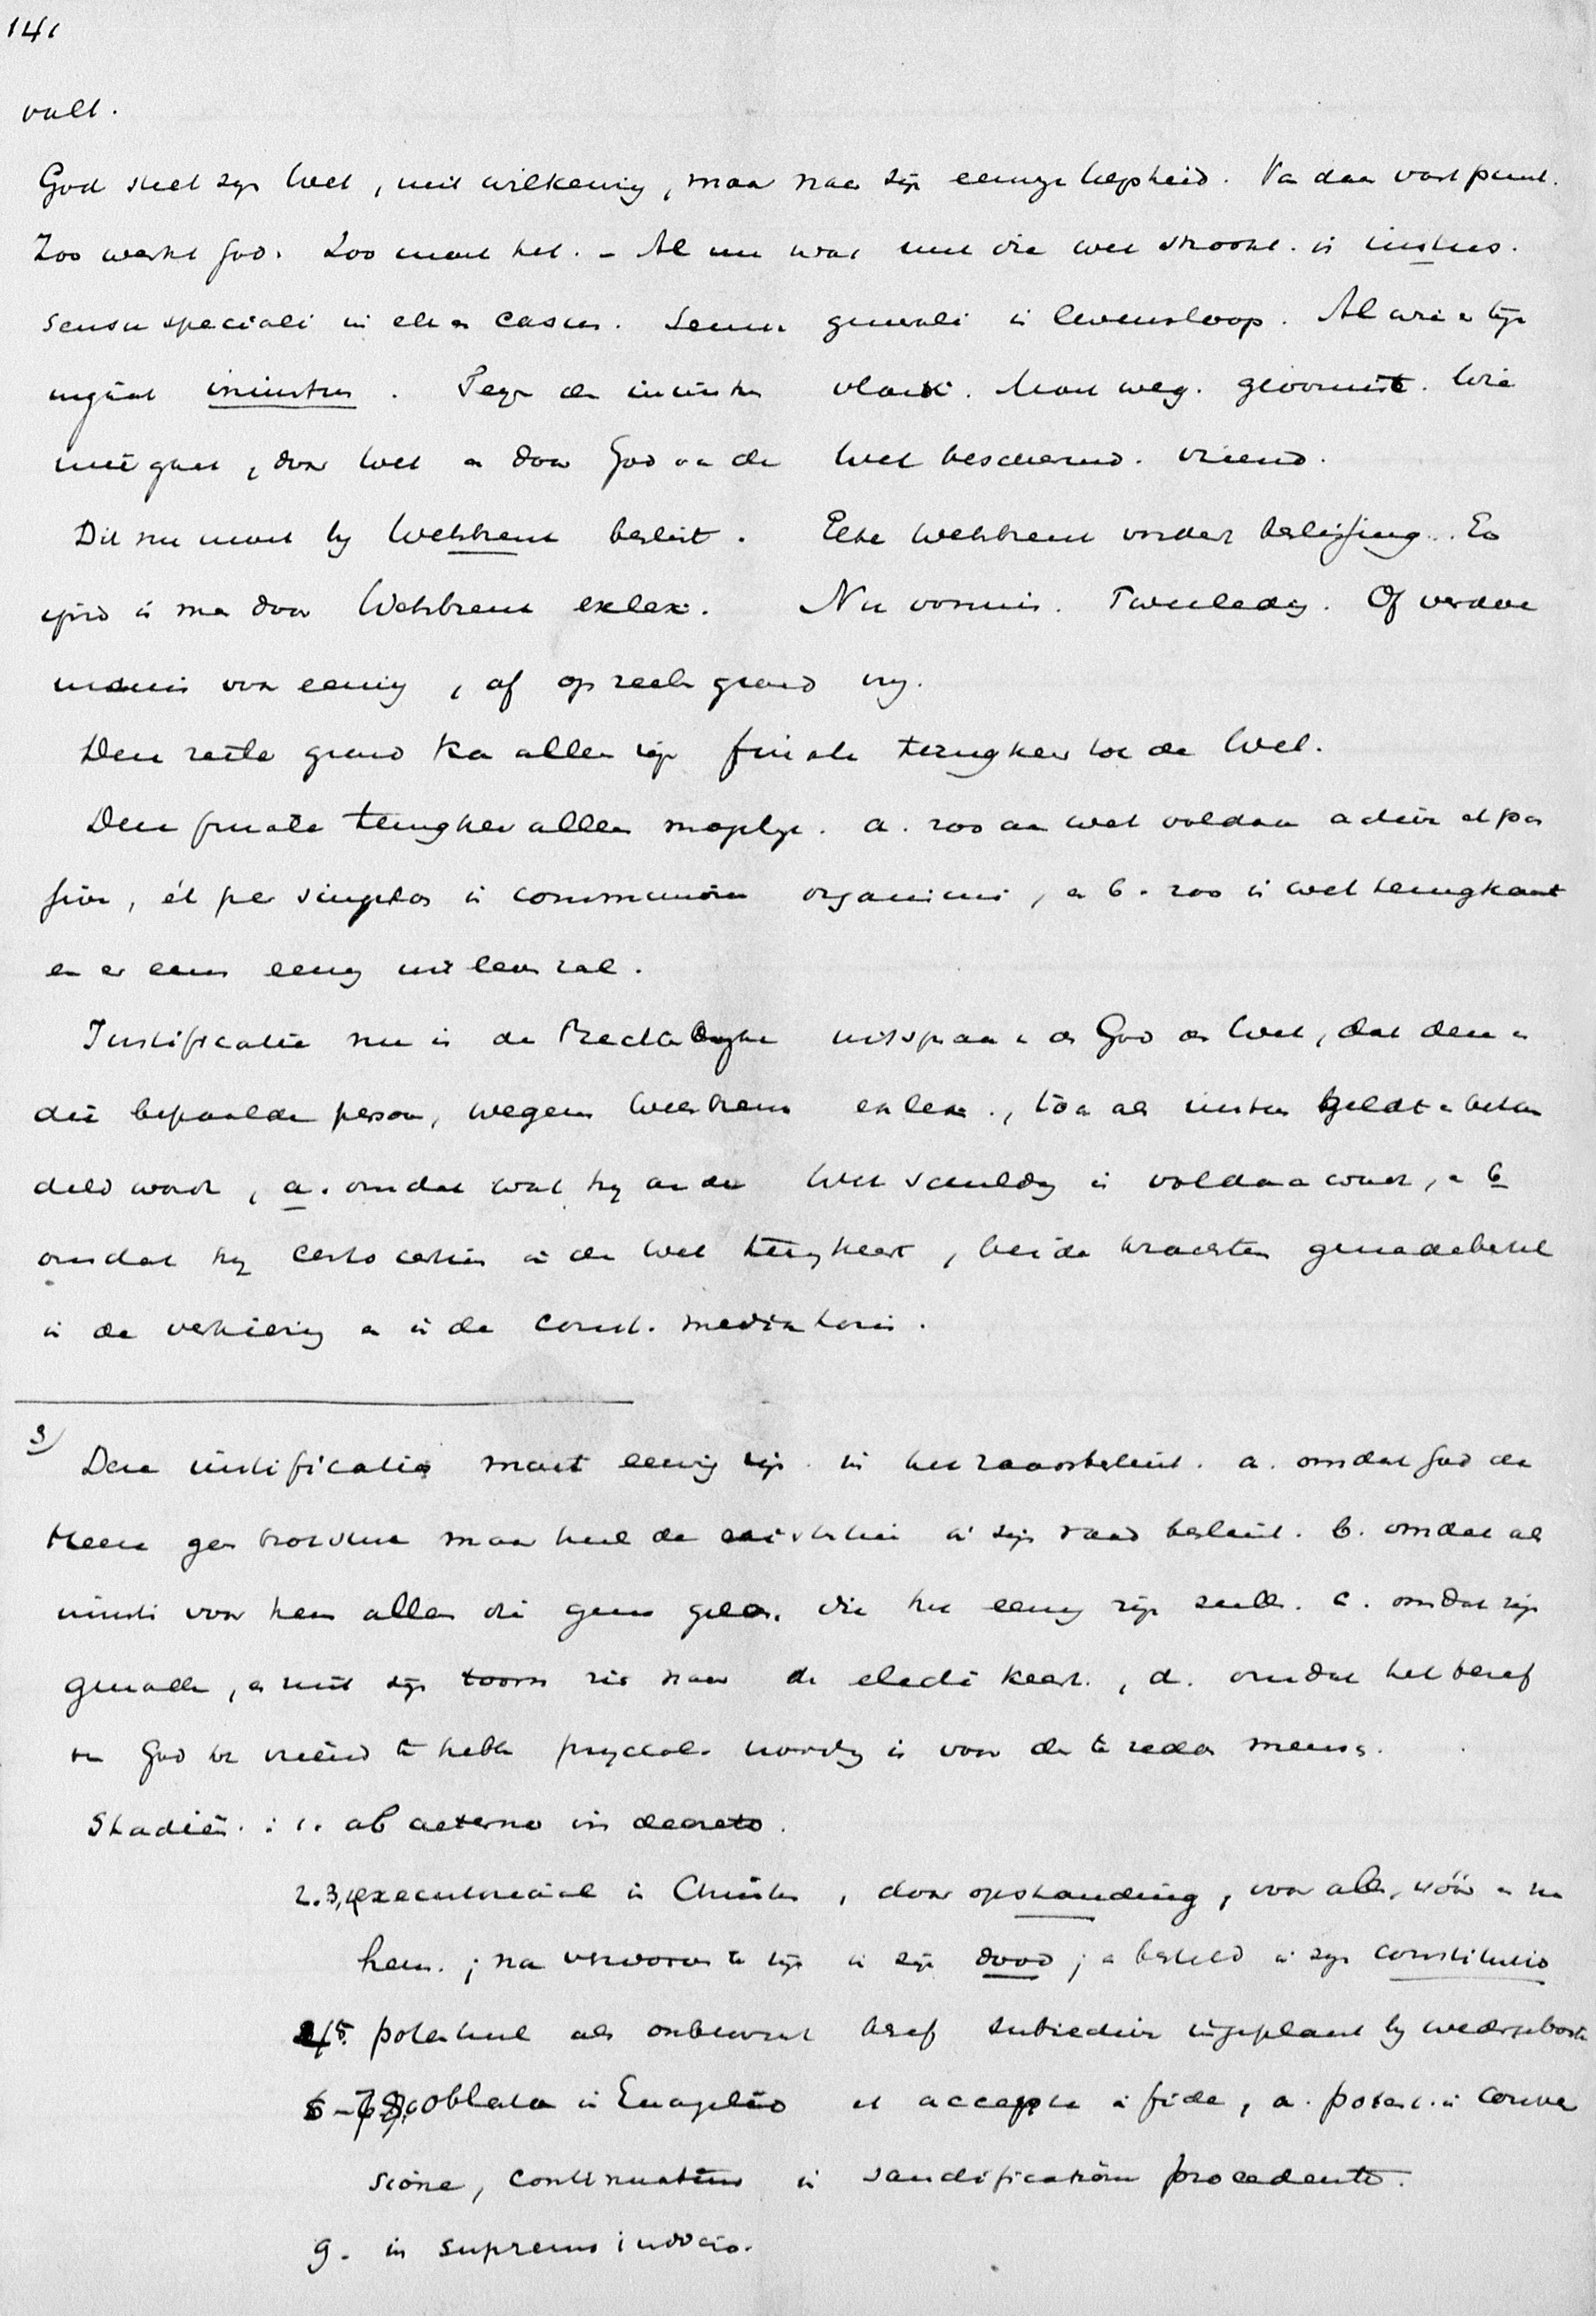 141
valt.
God stelt zijn Wet, niet willekeurig, maar naar zijn eeuwige hepheid. Van daar vast punt.
Zoo werkt God. Zoo moet het. - Al nu wat met die wet strookt. is iustus.
sensu speciali in elken casus. Sensu generali in levensloop. Al wie er tegen
ingaat iniustus. Tegen den iniustus vloekt. Moet weg. gevonnist. Wie
meegaat, door Wet en door God van de Wet beschermd. vriend.
Dit nu moet bij Wetsbreuk beslist. Elke Wetsbreuk vordert beslissing. En
is men door Wetsbreuk exlex. Nu vonnis. Tweeledig. Of verdoe
menis voor eeuwig, of op reeele grond vrij.
Deze reële grond kan alleen zijn finale terugkeer tot de Wet.
Deze finale terugkeer alleen mogelijk. a. zoo aan wet voldaan active et pas
sive, et per singulos in communione organicus, en b. zoo in wet terugkomt
en er eens eeuwig uit leven zal.
Justificatie nu is de Rechterlijke uitspraak van God en Wet, dat deze en
die bepaalde persoon, wegens Wetsbreuk exlex., toch als iustus geldt en behan
deld wordt, a. omdat wat hij aan de Wet schuldig is voldaan wordt, en b
omdat hij certo certius in de Wet terugkeert, beide krachtens genadebestel
in de verkiezing en in de const. mediatoris.
3) Deze iustificatio moet eeuwig zijn in het raadsbesluit. a. omdat God de
Heere geen maar heel de in zijn raad besluit. b. omdat als
iusti voor hem alleen die geen gelden, die het eeuwig zijn zullen. c. omdat zijn
genade, en niet zijn toorn zich naar de electi keert., d. omdat het besef
van God tot vriend te hebben psychol. noodig is voor de te redden mensch.
Stadiën. : 1. ab aeterno in decreto.
2.3,4 executoriaal in Christus, door opstanding, voor allen, vóór en na
hem. ; na verworven te zijn in zijn dood ; en besteld in zijn constitutio
5. potentieel als onbewust besef subiective ingeplant bij wedergeboorte
6-7 8. oblata in Evangelio et accepta in fide, a. potent. in conver
sione, continuatus in sanctificatione procedente.
9. in supremo iudicio.